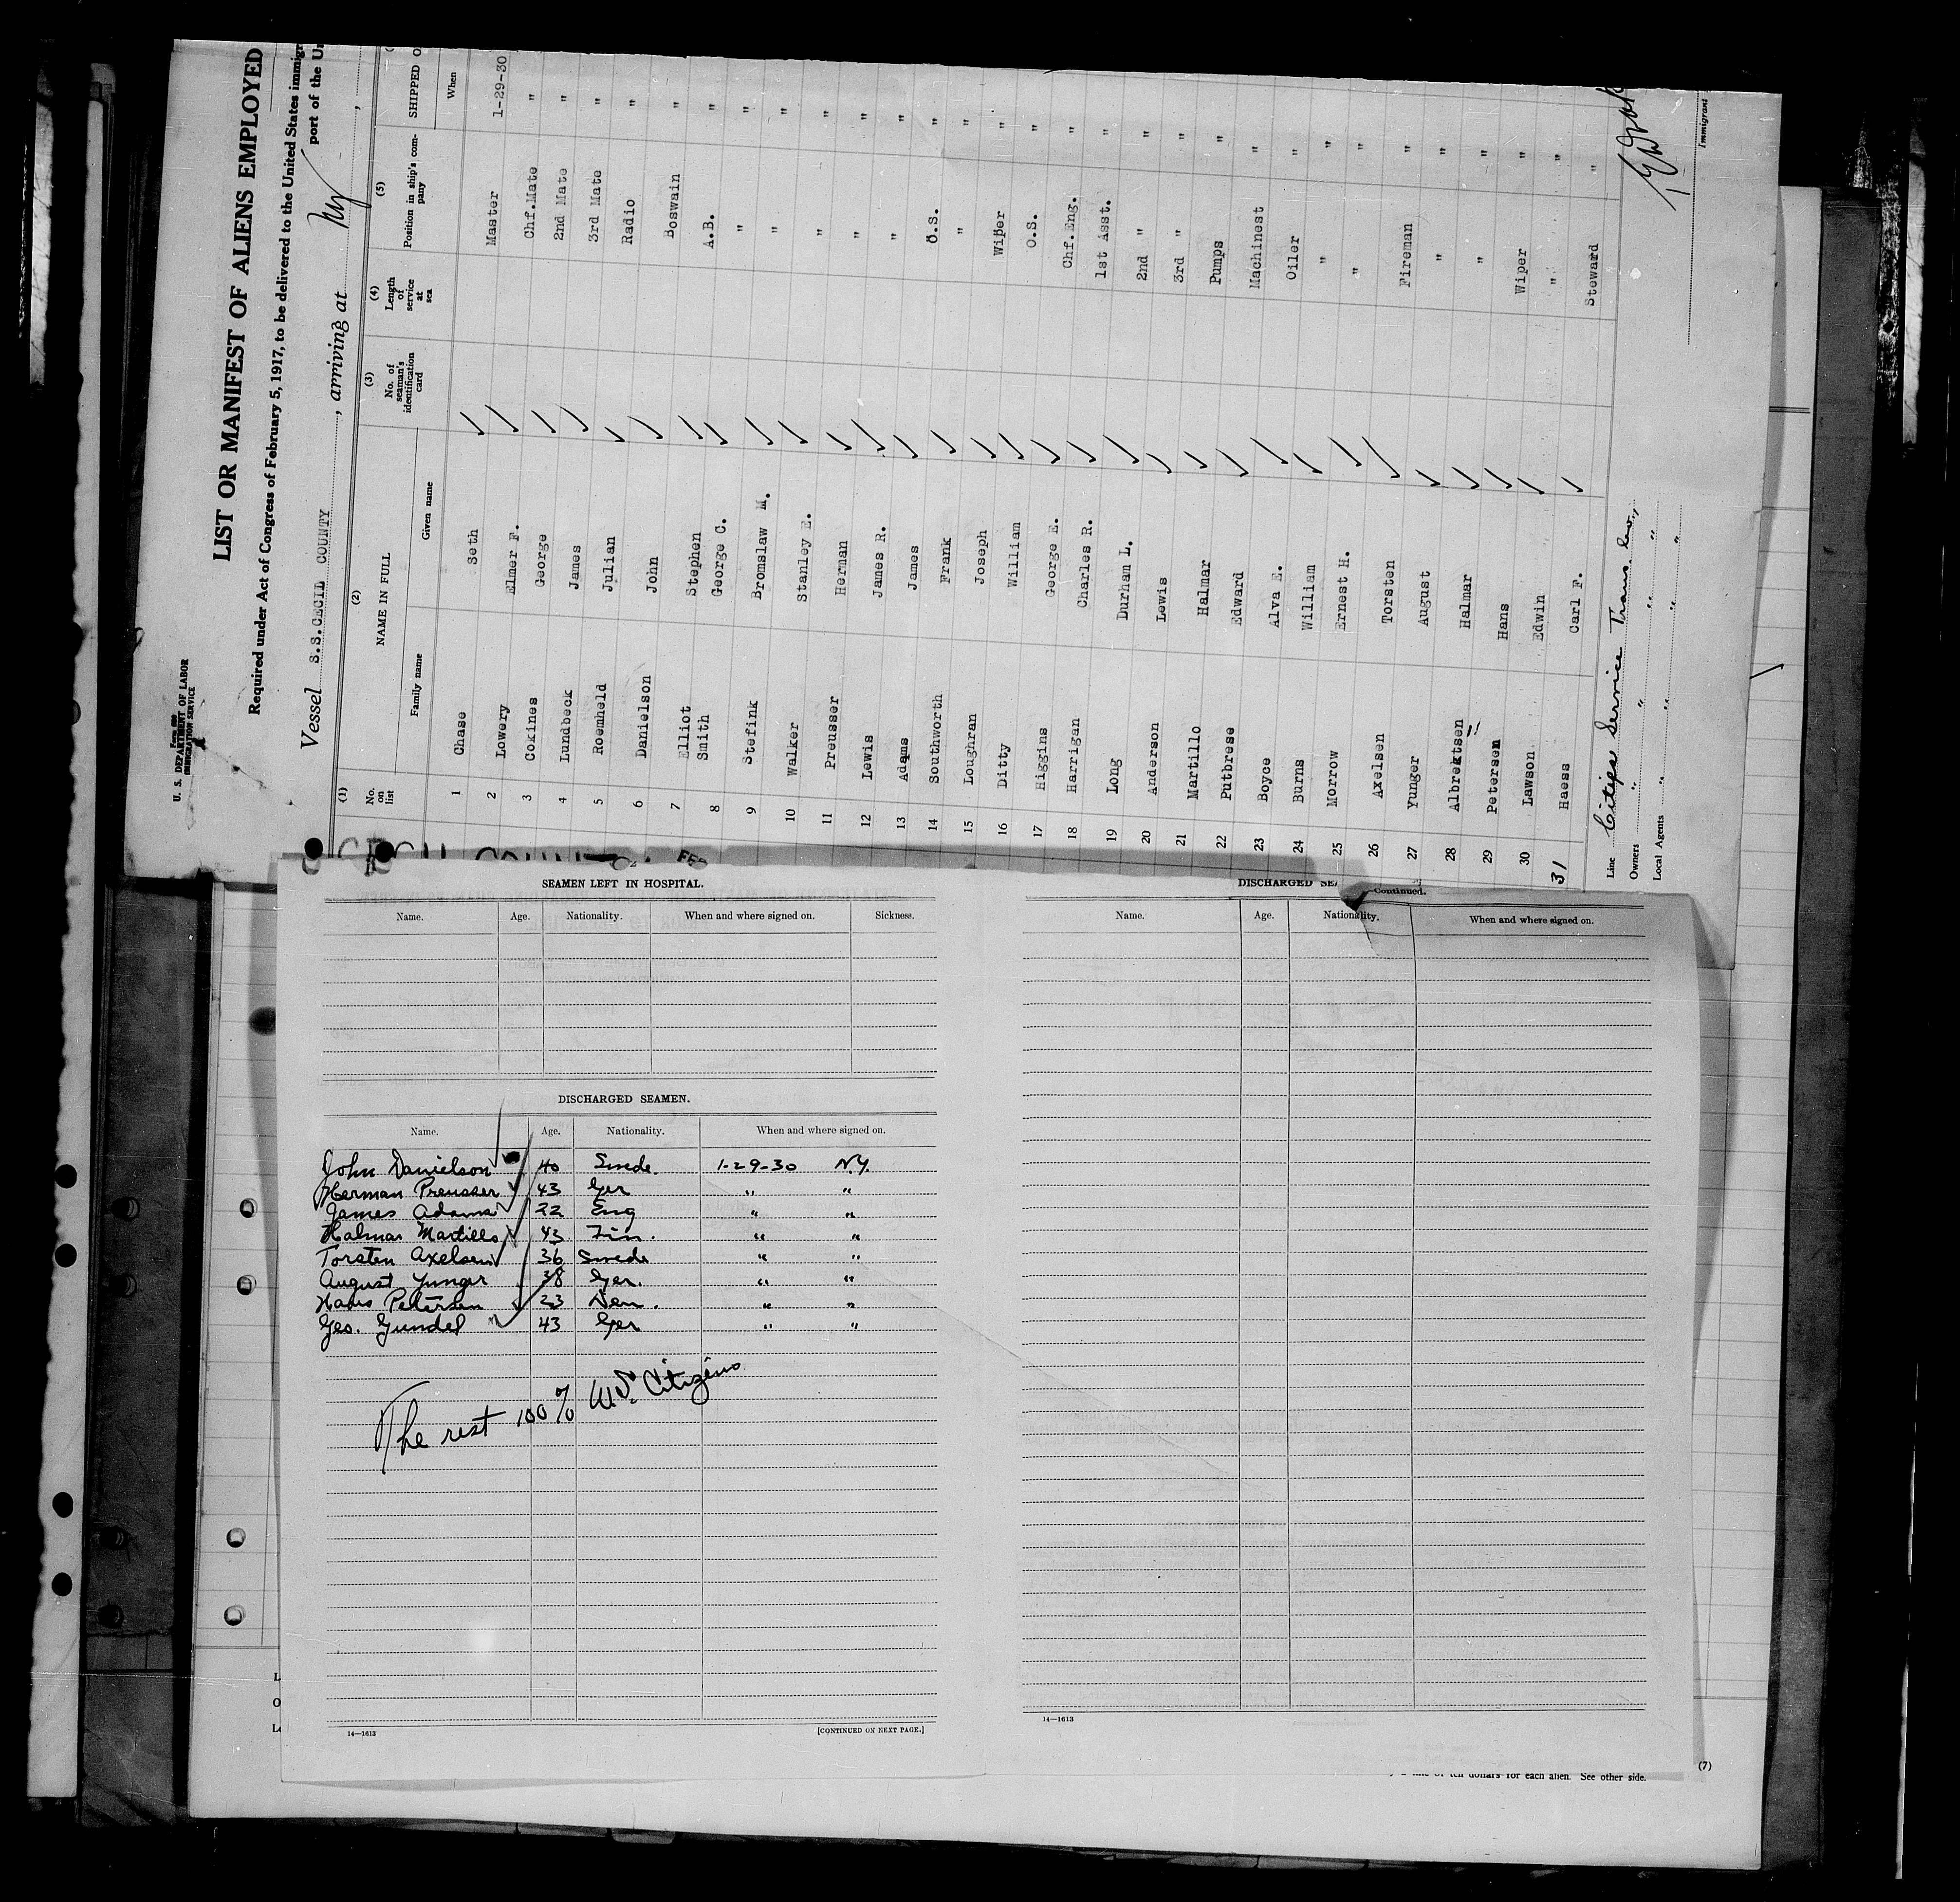 Form 680
U. S. DEPARTMENT OF LABOR
IMMIGRATION SERVICE
LIST OR MANIFEST OF ALIENS EMPLOYED
Required under Act of Congress of February 5, 1917, to be delivered to the United States immigr
port of the Un
Vessel S.S.CECIL COUNTY, arriving at NY,
(1) (2) (3) (4) (5)
No. on list NAME IN FULL No. of seaman's identification card Length of service at sea Position in ship's company SHIPPED O
Family name Given name When
1 Chase Seth Master 1-29-30
2 Lowery Elmer F. Chf.Mate "
3 Cokines George 2nd Mate "
4 Lundbeck James 3rd Mate "
5 Roemheld Julian Radio "
6 Danielson John Boswain "
7 Elliot Stephen A.B. "
8 Smith George C. " "
9 Stefink Bromslaw M. " "
10 Walker Stanley E. " "
11 Preusser Herman " "
12 Lewis James R. " "
13 Adams James O.S. "
14 Southworth Frank " "
15 Loughran Joseph Wiper "
16 Ditty William O.S. "
17 Higgins George E. Chf.Eng. "
18 Harrigan Charles R. 1st Asst. "
19 Long Durham L. 2nd " "
20 Anderson Lewis 3rd " "
21 Martillo Halmar Pumps "
22 Putbrese Edward Machinest "
23 Boyce Alva E. Oiler "
24 Burns William " "
25 Morrow Ernest H. " "
26 Axelsen Torsten Fireman "
27 Yunger August " "
28 Albrektsen Halmar " "
29 Petersen Hans Wiper "
30 Lawson Edwin " "
31 Haess Carl F. Steward "
Line Cities Service Trans. Co.,
Owners " " " "
Local Agents " " " "
Immigrant
FEB
SEAMEN LEFT IN HOSPITAL.
Name. Age. Nationality. When and where signed on. Sickness.
DISCHARGED SEAMEN.
Name. Age. Nationality. When and where signed on.
John Danielson 40 Swede. 1-29-30 N.Y.
Herman Preusser 43 Ger " "
James Adams 22 Eng " "
Halmar Martillo 43 Fin. " "
Torsten Axelsen 36 Swede " "
August Yunger 38 Ger. " "
Hans Petersen 23 Den. " "
Geo. Gundel 43 Ger " "
The rest 100% U.S. Citizens
14—1613 [CONTINUED ON NEXT PAGE.]
DISCHARGED SEA Continued.
Name. Age. Nationality. When and where signed on.
14—1613
of ten dollars for each alien. See other side.
(7)